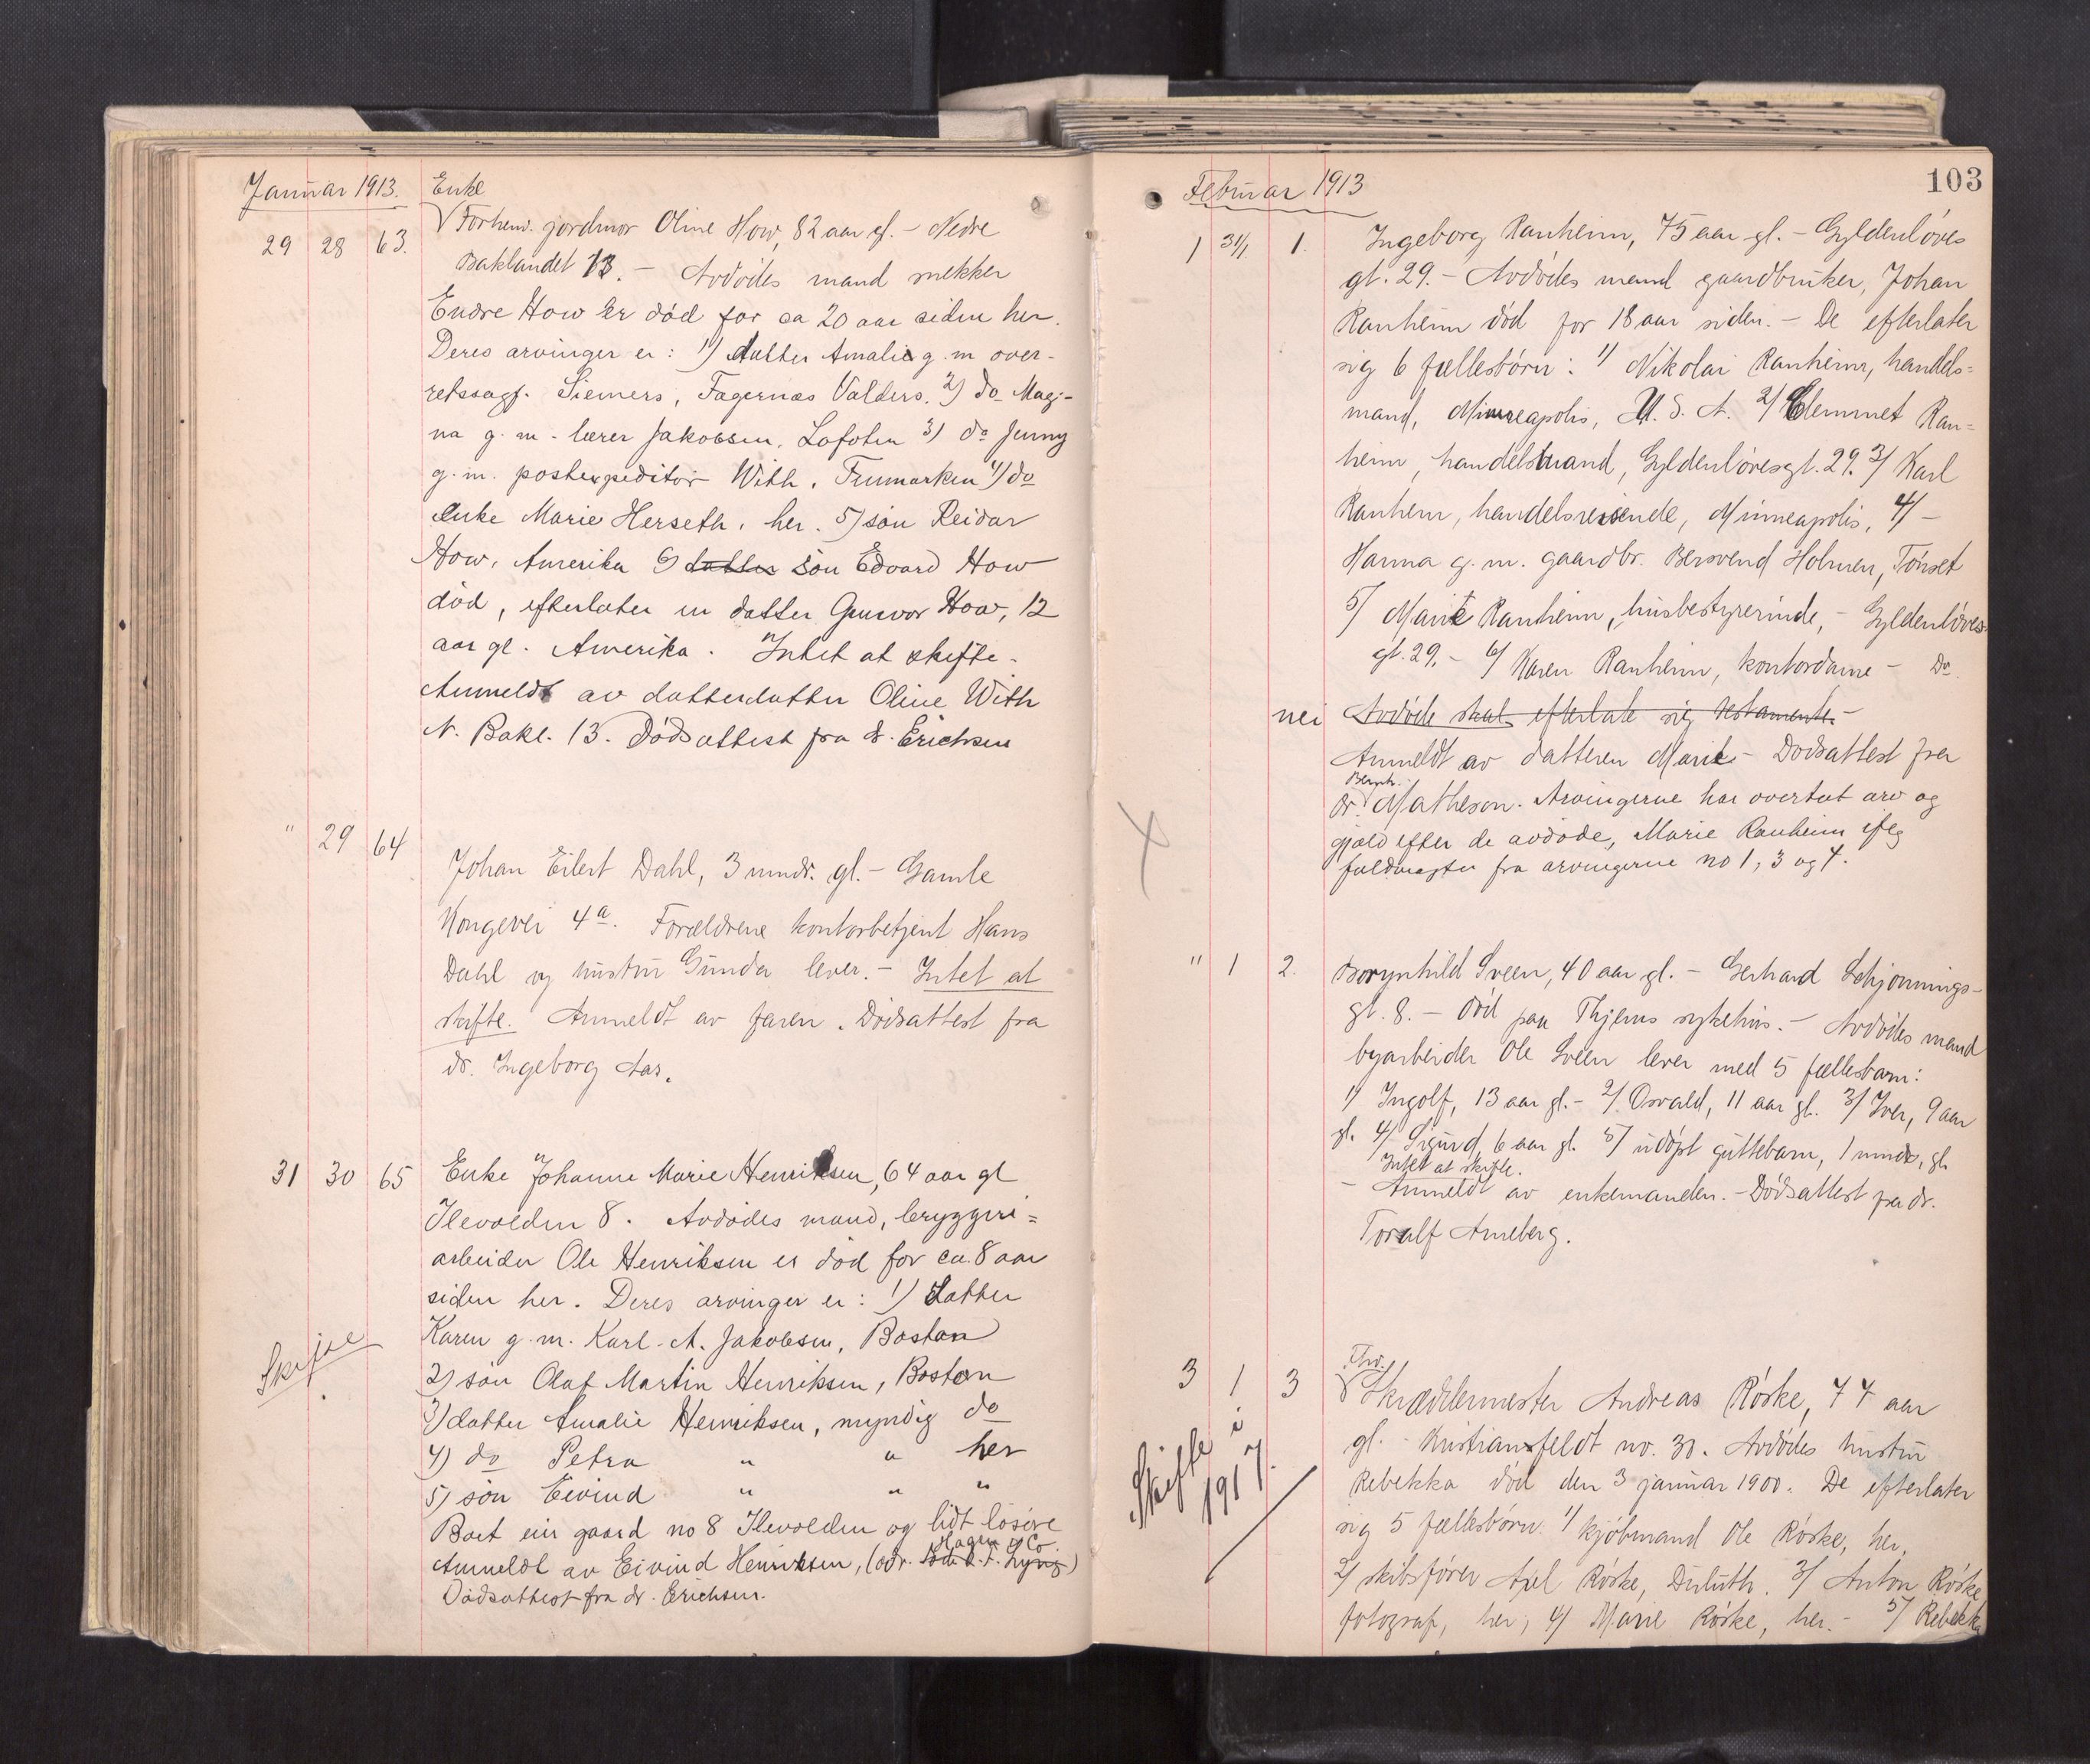 Januar 1913.
Enke
29 28 63. Forhenv. jordmor Oline How, 82 aar gl. - Nedre
Baklandet 13. - Avdødes mand snekker
Endre How er død for ca 20 aar siden her.
Deres arvinger er: 1) datter Amalie g. m over-
retssagf. Siemers, Fagernæs Valders. 2) do Mag-
na g. m. lærer Jakobsen, Lofoten 3) do Jenny
g. m. postexpeditør With, Finmarken 4) do
enke Marie Herseth, her. 5) søn Reidar
How, Amerika 6) datter søn Edvard How
død, efterlater en datter Gunvor How, 12
aar gl. Amerika. Intet at skifte.
Anmeldt av datterdatter Oline With
N. Bakl. 13. Dødsattest fra dr. Erichsen
" 29 64
Johan Eilert Dahl, 3 mndr. gl. - Gamle
Kongevei 4a. Forældrene kontorbetjent Hans
Dahl og hustru Gunda lever. - Intet at
skifte. Anmeldt av faren. Dødsattest fra
dr. Ingeborg Aas.
31 30 65 Enke Johanne Marie Henriksen, 64 aar gl
Ilevolden 8. Avdødes mand, bryggeri=
arbeider Ole Henriksen er død for ca. 8 aar
siden her. Deres arvinger er: 1) Datter
Karen g. m. Karl. A. Jakobsen, Boston
2) søn Olaf Martin Henriksen, Boston
3) datter Amalie Henriksen, myndig do
4) do Petra " " her
5) søn Eivind " " "
Boet eier gaard no 8 Ilevolden og lidt løsøre
Hagen & Co.
Anmeldt av Eivind Henriksen, (adr.
Dødsattest fra dr. Erichsen.
103
Februar 1913
1 31/1 1. Ingeborg Ranheim, 75 aar gl. - Gyldenløves
gt. 29. - Avdødes mand gaardbruker, Johan
Ranheim død for 18 aar siden. - De efterlater
sig 6 fællesbørn: 1/ Nikolai Ranheim, handels=
mand, Minneapolis, U. S. A. 2/ Clemmet Ran=
heim, handelsmand, Gyldenløvesgt. 29. 3/ Karl
Ranheim, handelsreisende, Minneapolis, 4/ -
Hanna g. m. gaardbr. Bersvend Holmen, Tønset
5/ Marit Ranheim, husbestyrerinde, - Gyldenløves-
gt. 29. - 6/ Karen Ranheim, kontordame - Do.
nei Avdøde skal efterlate sig testamente. -
Anmeldt av datteren Marit. - Dødsattest fra
Bernh.
dr. Matheson. Arvingerne har overtat arv og
gjæld efter de avdøde, Marie Ranheim iflg
fuldmagter fra arvingerne no 1, 3 og 4.
" 1 2. Borgnhild Sveen, 40 aar gl. - Gerhard Schjønnings-
gt. 8. - død paa Thjems sykehus. - Avdødes mand
byarbeider Ole Sveen lever med 5 fællesbarn:
1/ Ingolf, 13 aar gl. - 2/ Osvald, 11 aar gl. 3/ Iver, 9 aar
gl. 4/ Sigurd, 6 aar gl. 5/ udøpt guttebarn, 1 mndr, gl.
Intet at skifte.
- Anmeldt av enkemanden. - Dødsattest fra dr.
Toralf Arneberg.
3 1 3 Skræddermester Andreas Røske, 74 aar
gl. - Kristiansfeldt no. 30. Avdødes hustru
Rebekka død den 3 januar 1900. De efterlater
sig 5 fællesbørn. 1/ kjøbmand Ole Røske, her,
2/ skibsfører Axel Røske, Duluth. 3/ Anton Røske
fotograf, her, 4/ Marie Røske, her. - 5/ Rebekka
Skifte i
1917.